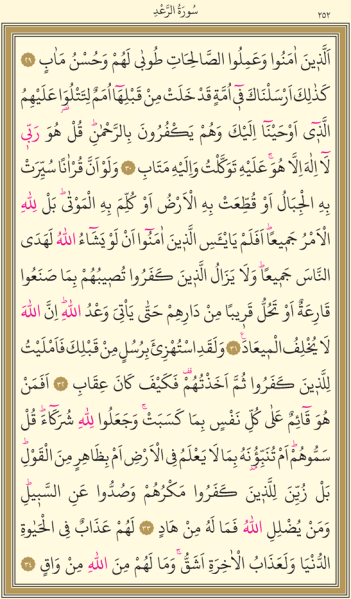 سُورَةُ الرَّعْدِ ٢٥٢
اَلَّذ۪ينَ اٰمَنُوا وَعَمِلُوا الصَّالِحَاتِ طُوبٰى لَهُمْ وَحُسْنُ مَاٰبٍ ٢٩
كَذٰلِكَ اَرْسَلْنَاكَ ف۪ٓي اُمَّةٍ قَدْ خَلَتْ مِنْ قَبْلِهَٓا اُمَمٌ لِتَتْلُوَ۬ا عَلَيْهِمُ
الَّذ۪ٓي اَوْحَيْنَٓا اِلَيْكَ وَهُمْ يَكْفُرُونَ بِالرَّحْمٰنِۜ قُلْ هُوَ رَبّ۪ي
لَٓا اِلٰهَ اِلَّا هُوَۚ عَلَيْهِ تَوَكَّلْتُ وَاِلَيْهِ مَتَابِ ٣٠ وَلَوْ اَنَّ قُرْاٰنًا سُيِّرَتْ
بِهِ الْجِبَالُ اَوْ قُطِّعَتْ بِهِ الْاَرْضُ اَوْ كُلِّمَ بِهِ الْمَوْتٰىۜ بَلْ لِلّٰهِ
الْاَمْرُ جَم۪يعًاۜ اَفَلَمْ يَا۬يْـَٔسِ الَّذ۪ينَ اٰمَنُٓوا اَنْ لَوْ يَشَٓاءُ اللّٰهُ لَهَدَى
النَّاسَ جَم۪يعًاۜ وَلَا يَزَالُ الَّذ۪ينَ كَفَرُوا تُص۪يبُهُمْ بِمَا صَنَعُوا
قَارِعَةٌ اَوْ تَحُلُّ قَر۪يبًا مِنْ دَارِهِمْ حَتّٰى يَأْتِيَ وَعْدُ اللّٰهِۜ اِنَّ اللّٰهَ
لَا يُخْلِفُ الْم۪يعَادَ۟ ٣١ وَلَقَدِ اسْتُهْزِئَ بِرُسُلٍ مِنْ قَبْلِكَ فَاَمْلَيْتُ
لِلَّذ۪ينَ كَفَرُوا ثُمَّ اَخَذْتُهُمْ۠ فَكَيْفَ كَانَ عِقَابِ ٣٢ اَفَمَنْ
هُوَ قَٓائِمٌ عَلٰى كُلِّ نَفْسٍ بِمَا كَسَبَتْۚ وَجَعَلُوا لِلّٰهِ شُرَكَٓاءَۜ قُلْ
سَمُّوهُمْۜ اَمْ تُنَبِّؤُ۫نَهُ بِمَا لَا يَعْلَمُ فِي الْاَرْضِ اَمْ بِظَاهِرٍ مِنَ الْقَوْلِۜ
بَلْ زُيِّنَ لِلَّذ۪ينَ كَفَرُوا مَكْرُهُمْ وَصُدُّوا عَنِ السَّب۪يلِۜ
وَمَنْ يُضْلِلِ اللّٰهُ فَمَا لَهُ مِنْ هَادٍ ٣٣ لَهُمْ عَذَابٌ فِي الْحَيٰوةِ
الدُّنْيَا وَلَعَذَابُ الْاٰخِرَةِ اَشَقُّۚ وَمَا لَهُمْ مِنَ اللّٰهِ مِنْ وَاقٍ ٣٤